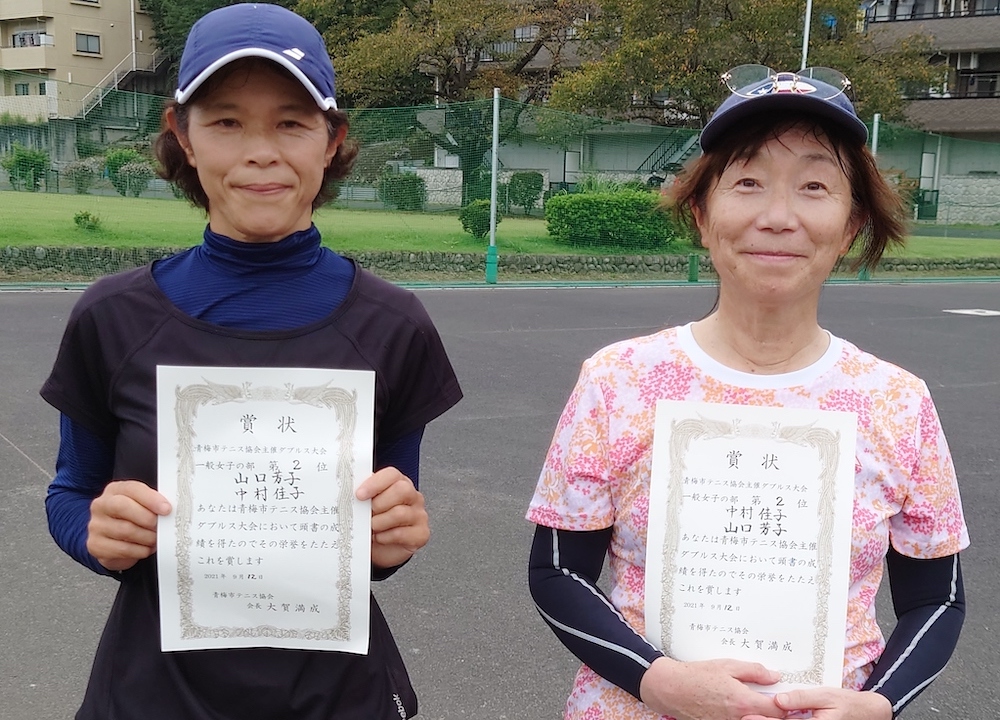 賞状
青梅市テニス協会主催ダブルス大会
一般女子の部 第2位
山口芳子
中村佳子
あなたは青梅市テニス協会主催
ダブルス大会において頭書の成
績を得たのでその栄誉をたたえ
これを賞します
2021年 9月12日
青梅市テニス協会
会長 大賀満成
賞状
青梅市テニス協会主催ダブルス大会
一般女子の部 第2位
中村佳子
山口芳子
あなたは青梅市テニス協会主催
ダブルス大会において頭書の成
績を得たのでその栄誉をたたえ
これを賞します
2021年 9月12日
青梅市テニス協会
会長 大賀満成